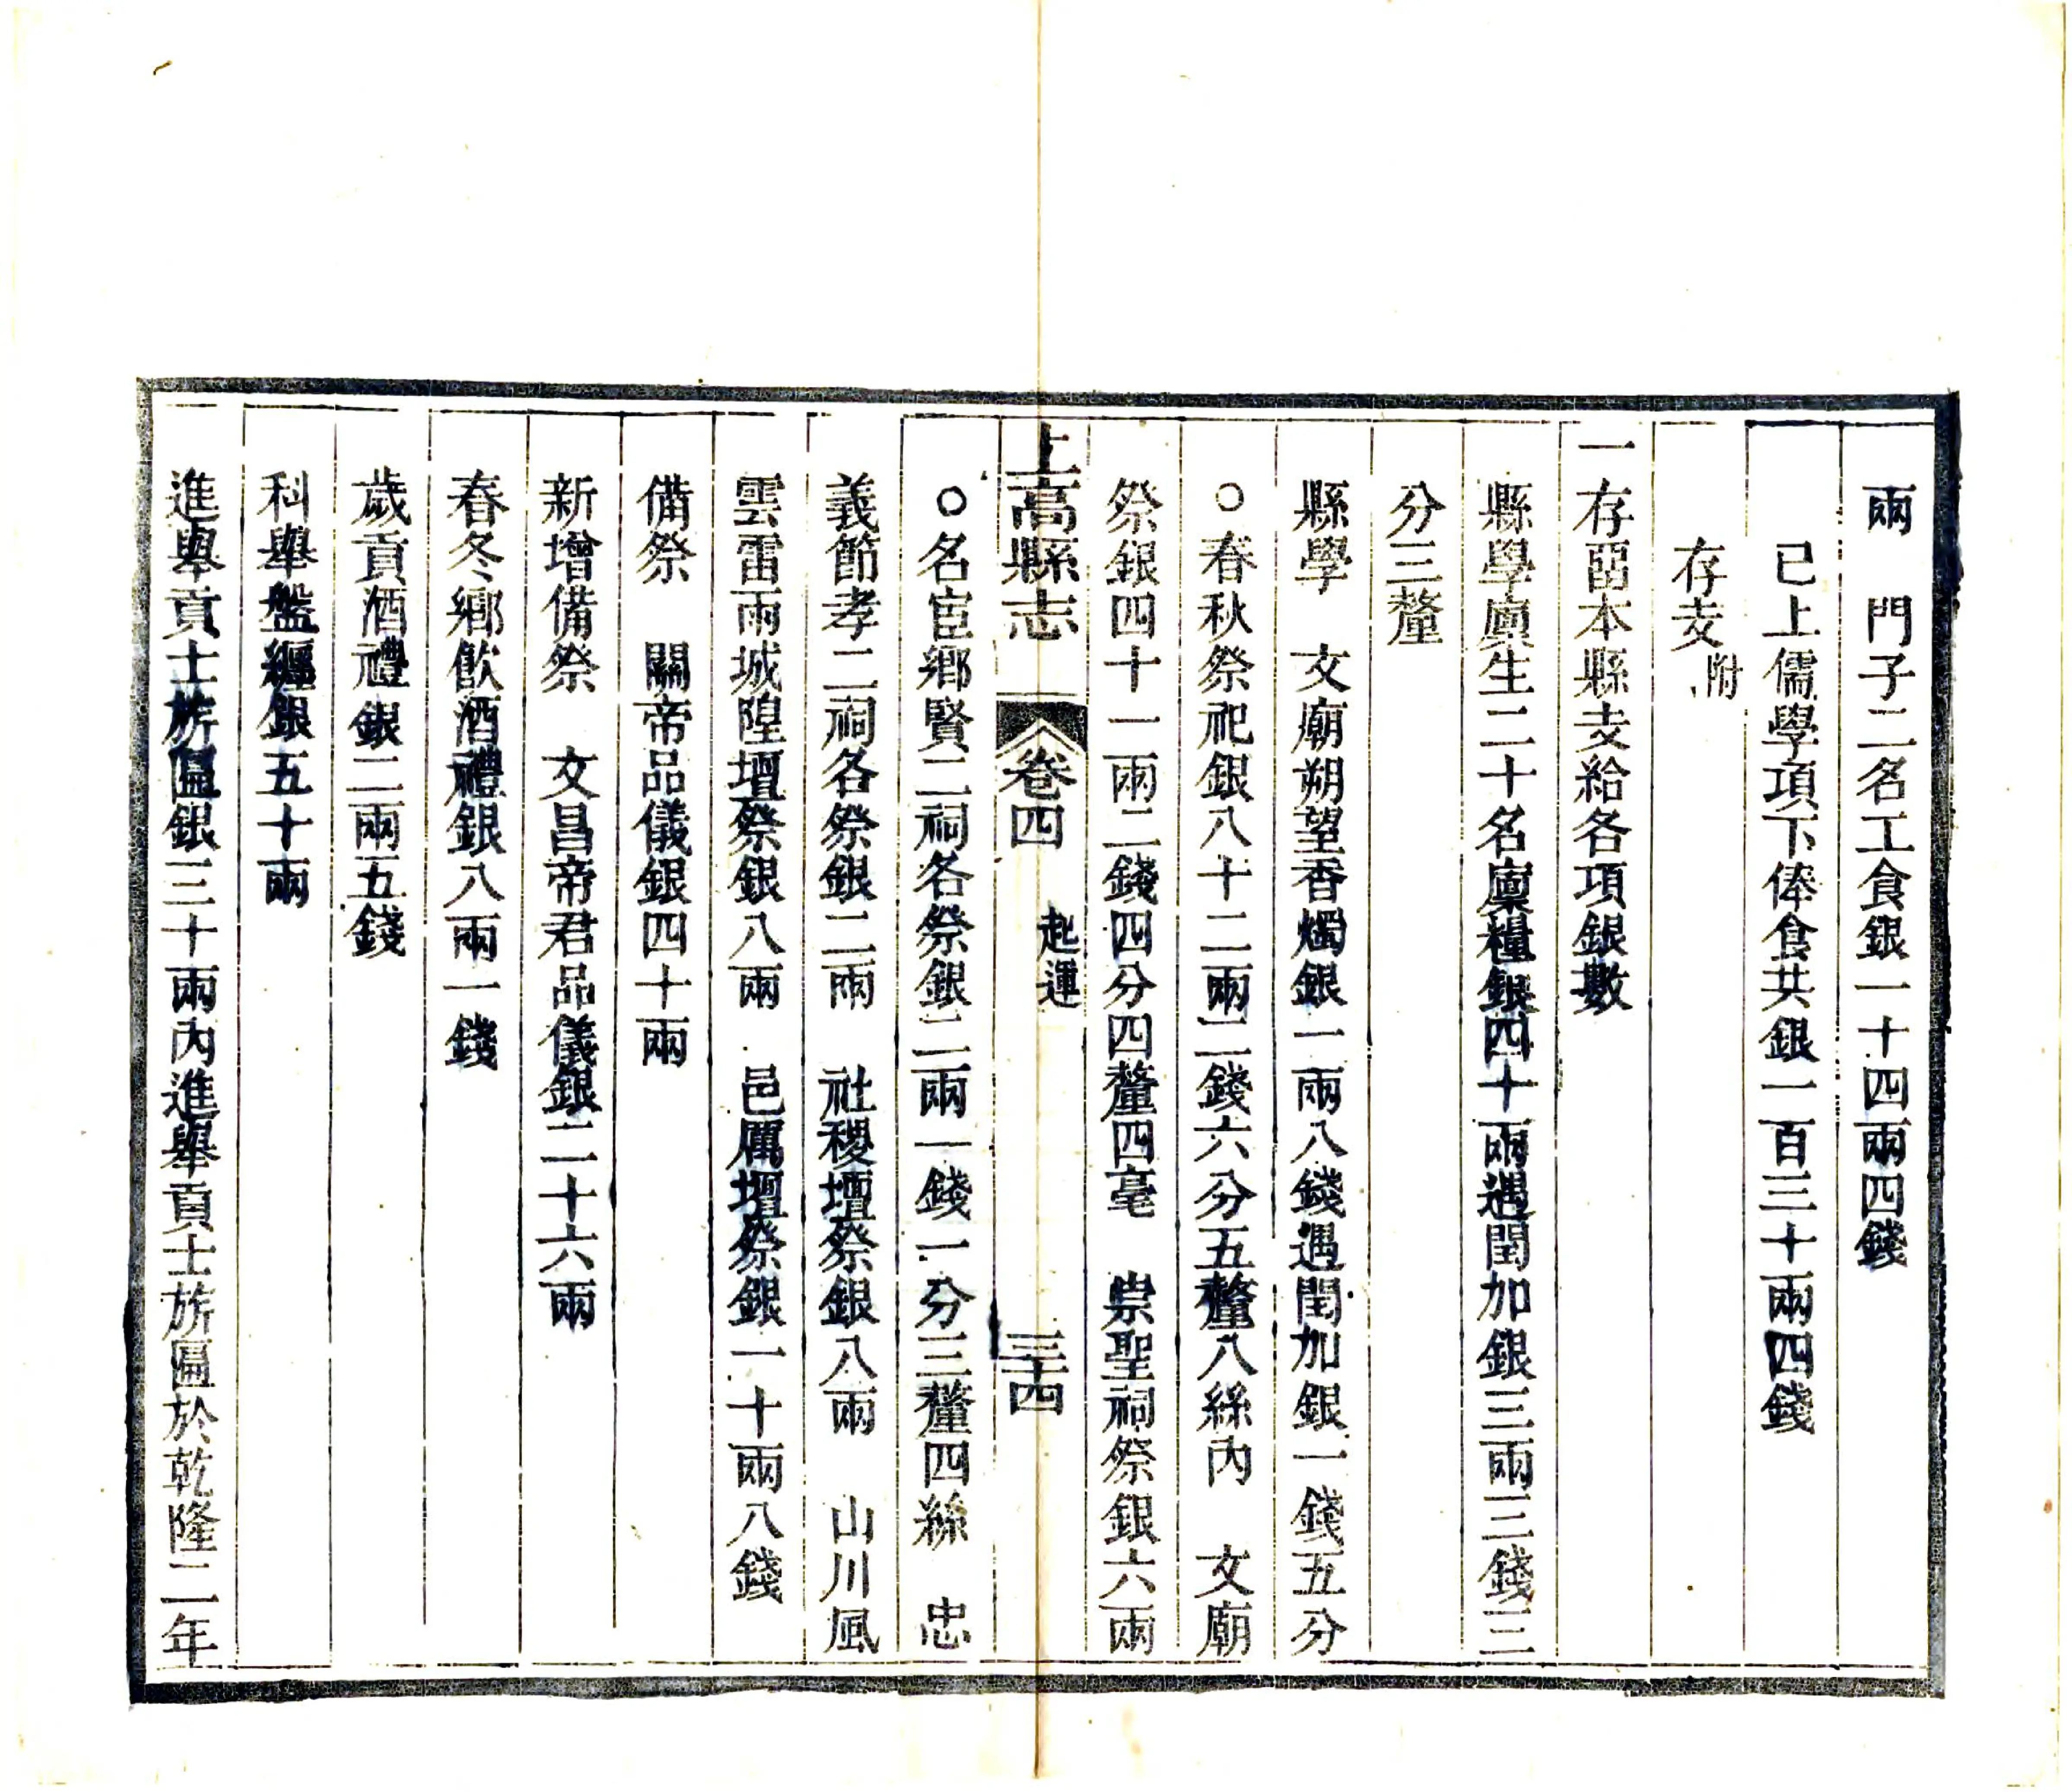 兩　門子二名工食銀一十四兩四錢
已上儒學項下俸食共銀一百三十兩四錢
存支附
一存留本縣支給各項銀數
縣學廩生二十名廩糧銀四十兩遇閏加銀三兩三錢三
分三釐
縣學　文廟朔望香燭銀一兩八錢遇閏加銀一錢五分
○春秋祭祀銀八十二兩二錢六分五釐八絲內　文廟
祭銀四十一兩二錢四分四釐四毫　崇聖祠祭銀六兩
上高縣志　卷四　起運　三十四
○名宦鄉賢二祠各祭銀二兩一錢一分三釐四絲　忠
義節孝二祠各祭銀二兩　社稷壇祭銀八兩　山川風
雲雷雨城隍壇祭銀八兩　邑厲壇祭銀一十兩八錢
備祭　關帝品儀銀四十兩
新增備祭　文昌帝君品儀銀二十六兩
春冬鄉飲酒禮銀八兩一錢
歲貢酒禮銀二兩五錢
科舉盤纏銀五十兩
進舉貢士旂匾銀三十兩內進舉貢士旂匾於乾隆二年